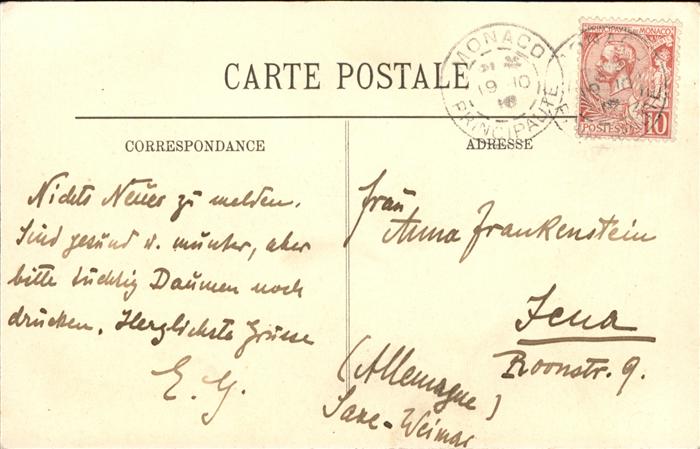 CARTE POSTALE
MONACO
19 10
PRINCIPAUTÉ
PRINCIPAUTÉ DE MONACO
POSTES
10
CORRESPONDANCE
ADRESSE
Nichts Neues zu melden.
Sind gesund u. munter, aber
bitte tüchtig Daumen noch
drücken. Herzlichste Grüsse
E. G.
Frau
Anna Frankenstein
Jena
Roonstr. 9.
(Allemagne)
Saxe-Weimar